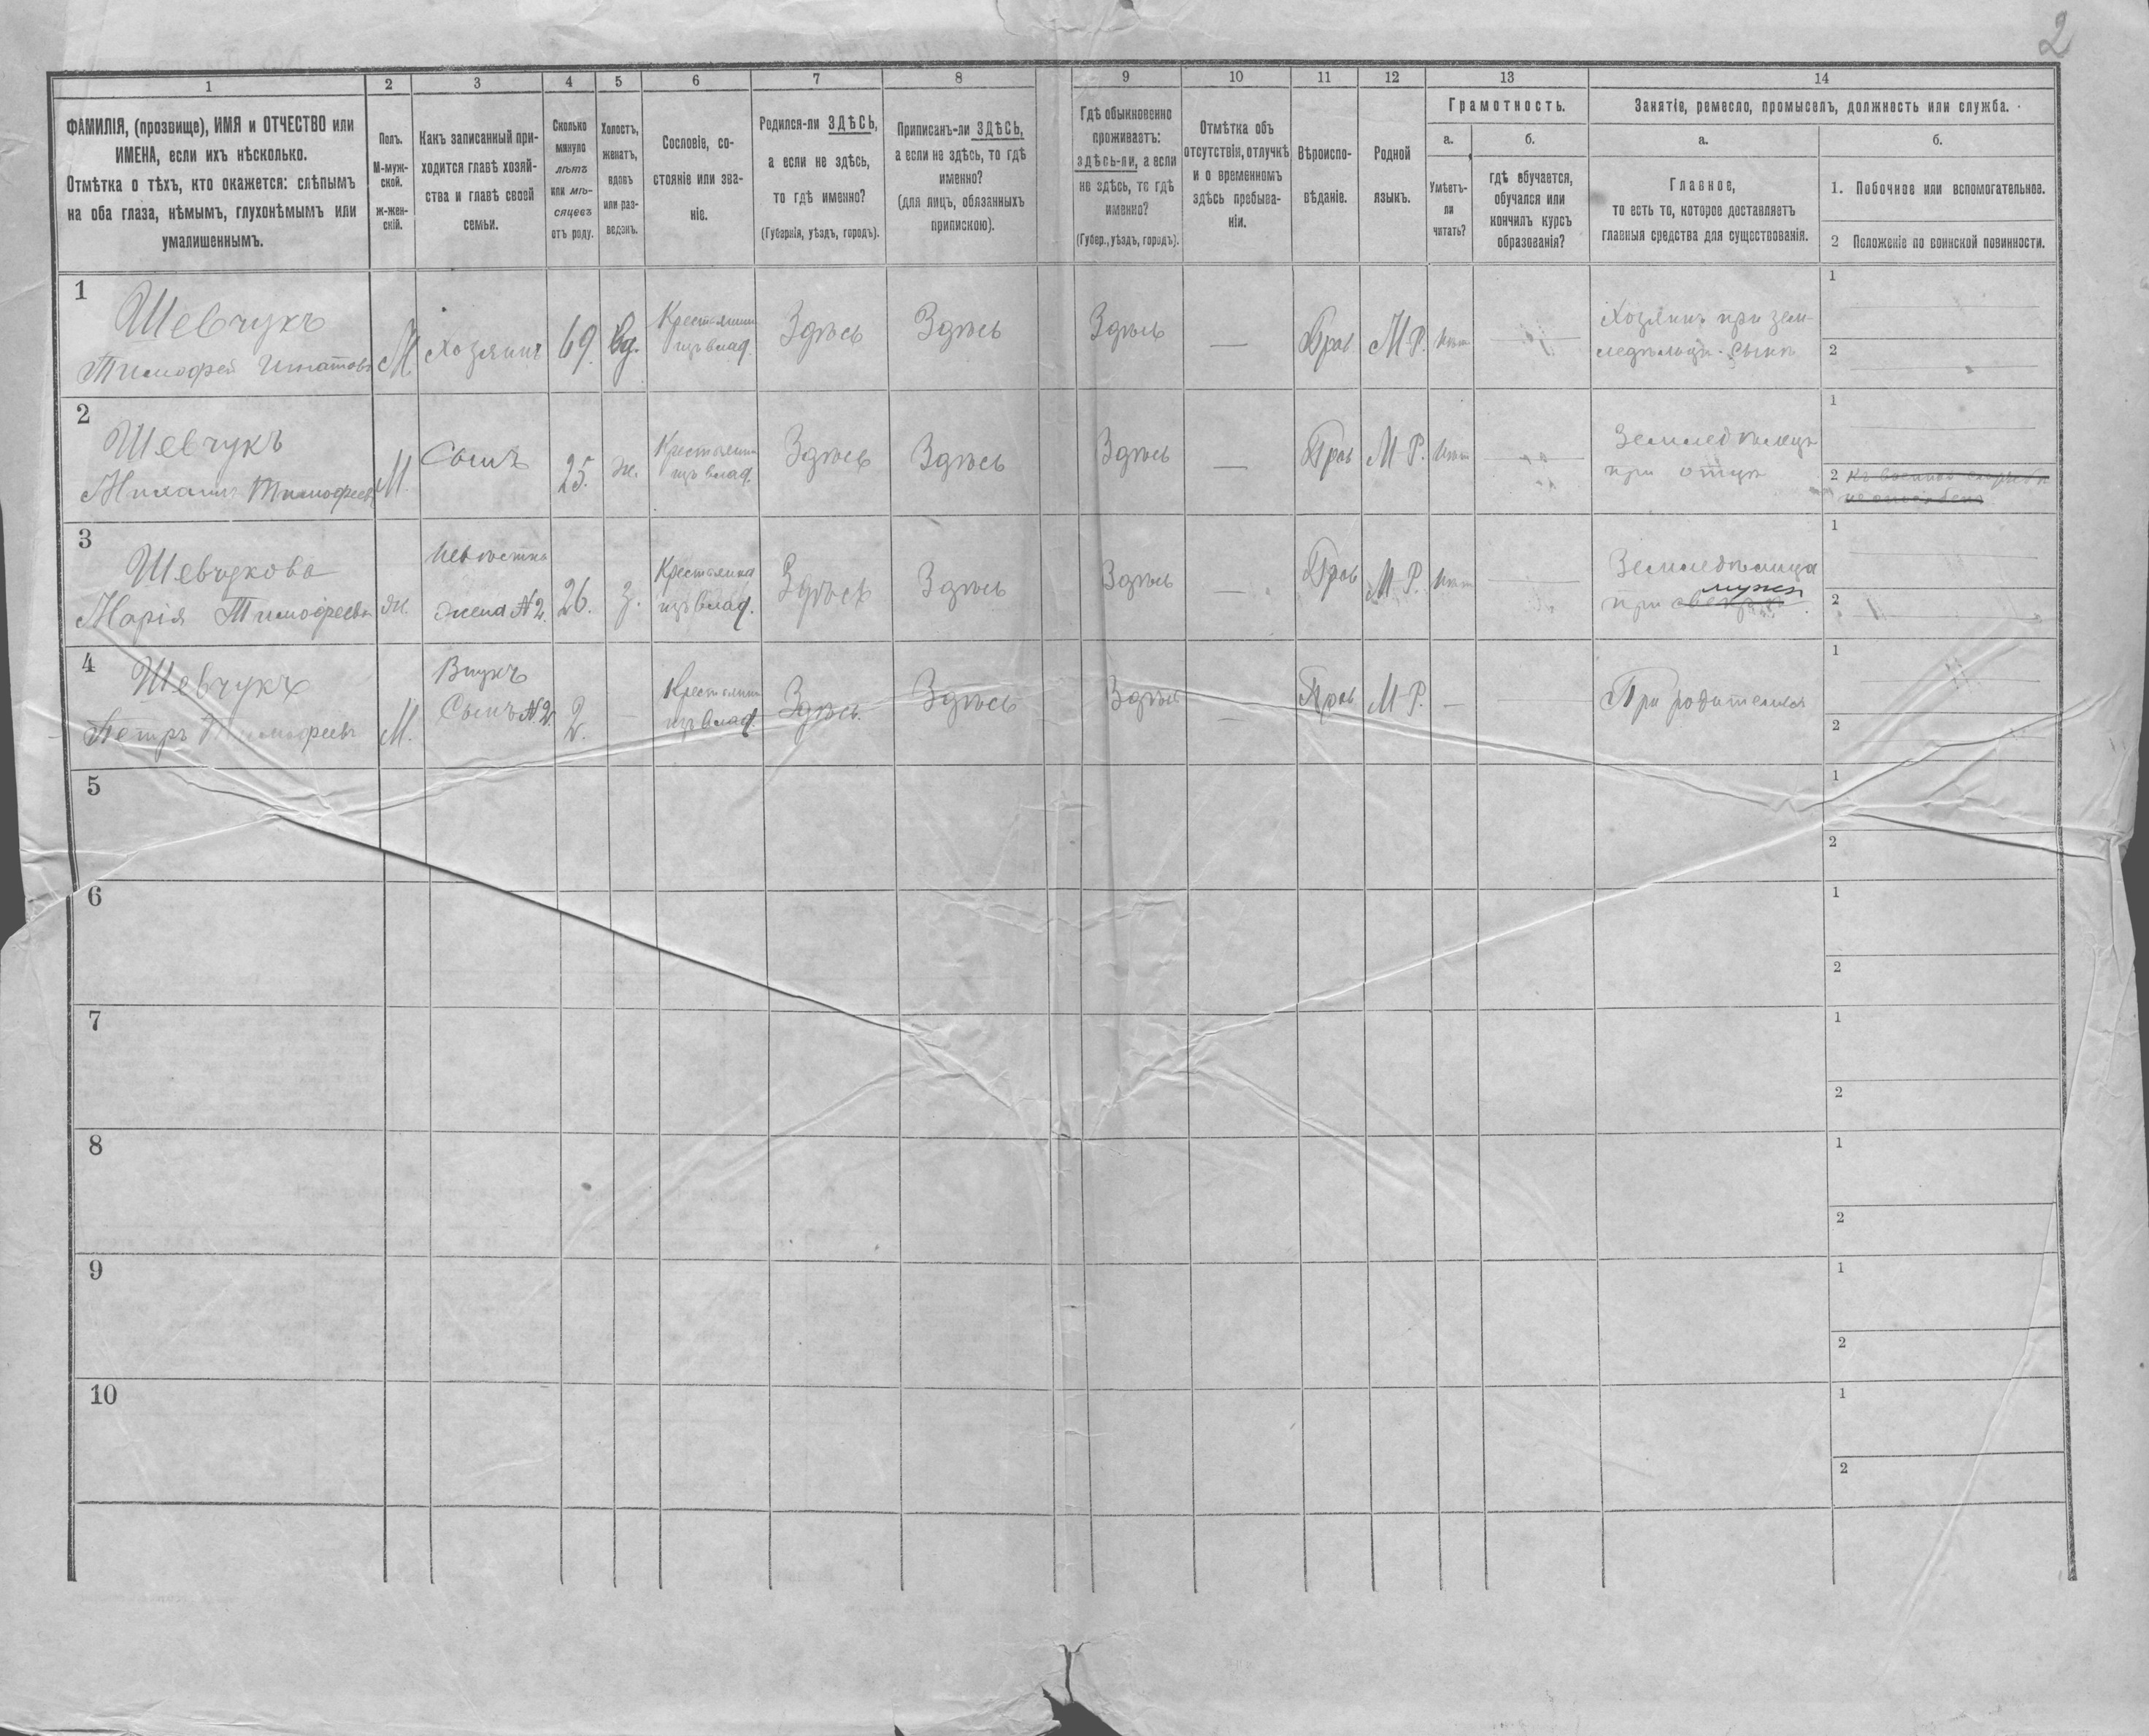 2
1 2 3 4 5 6 7 8 9 10 11 12 13 14
ФАМИЛІЯ, (прозвище), ИМЯ и ОТЧЕСТВО или
ИМЕНА, если ихъ нѣсколько.
Отмѣтка о тѣхъ, кто окажется: слѣпымъ
на оба глаза, нѣмымъ, глухонѣмымъ или
умалишеннымъ.
Полъ.
М-муж-
ской.
ж-жен-
скій.
Какъ записанный при-
ходится главѣ хозяй-
ства и главѣ своей
семьи.
Сколько
минуло
лѣтъ
или мѣ-
сяцевъ
отъ роду.
Холостъ,
женатъ,
вдовъ
или раз-
веденъ.
Сословіе, со-
стояніе или зва-
ніе.
Родился-ли ЗДѢСЬ,
а если не здѣсь,
то гдѣ именно?
(Губернія, уѣздъ, городъ).
Приписанъ-ли ЗДѢСЬ,
а если не здѣсь, то гдѣ
именно?
(для лицъ, обязанныхъ
припискою).
Гдѣ обыкновенно
проживаетъ:
здѣсь-ли, а если
не здѣсь, то гдѣ
именно?
(Губер., уѣздъ, городъ).
Отмѣтка объ
отсутствіи, отлучкѣ
и о временномъ
здѣсь пребыва-
ніи.
Вѣроиспо-
вѣданіе.
Родной
языкъ.
Грамотность.
а.
Умѣетъ-
ли
читать?
б.
гдѣ обучается,
обучался или
кончилъ курсъ
образованія?
Занятіе, ремесло, промыселъ, должность или служба.
а.
Главное,
то есть то, которое доставляетъ
главныя средства для существованія.
б.
1. Побочное или вспомогательное.
2 Положеніе по воинской повинности.
1
Шевчукъ
Тимофей Игнатовъ
М.
Хозяинъ
69.
вд.
Крестьянин
изъ влад.
Здѣсь
Здѣсь
Здѣсь
—
Прав
М-Р.
нѣт
Хозяинъ при зем-
ледѣльцѣ-сынѣ
1
2
2
Шевчукъ
Михаилъ Тимофеев
М.
Сынъ
25.
ж.
Крестьянин
изъ влад.
Здѣсь
Здѣсь
Здѣсь
—
Прав
М-Р.
нѣт
Земледѣлецъ
при отцѣ
1
2
3
Шевчукова
Марія Тимофеевн
Ж.
Невѣстка
жена №2.
26.
з.
Крестьянка
изъ влад.
Здѣсь
Здѣсь
Здѣсь
Прав
М-Р.
нѣт
Земледѣлица
мужѣ
при свекрѣ
1
2
4
Шевчукъ
Петръ Тимофеевъ
М.
Внукъ
Сынъ №2.
2.
Крестьянин
изъ влад.
Здѣсь.
Здѣсь
Здѣсь
—
Прав
М-Р.
—
При родителяхъ
1
2
5
1
2
6
1
2
7
1
2
8
1
2
9
1
2
10
1
2